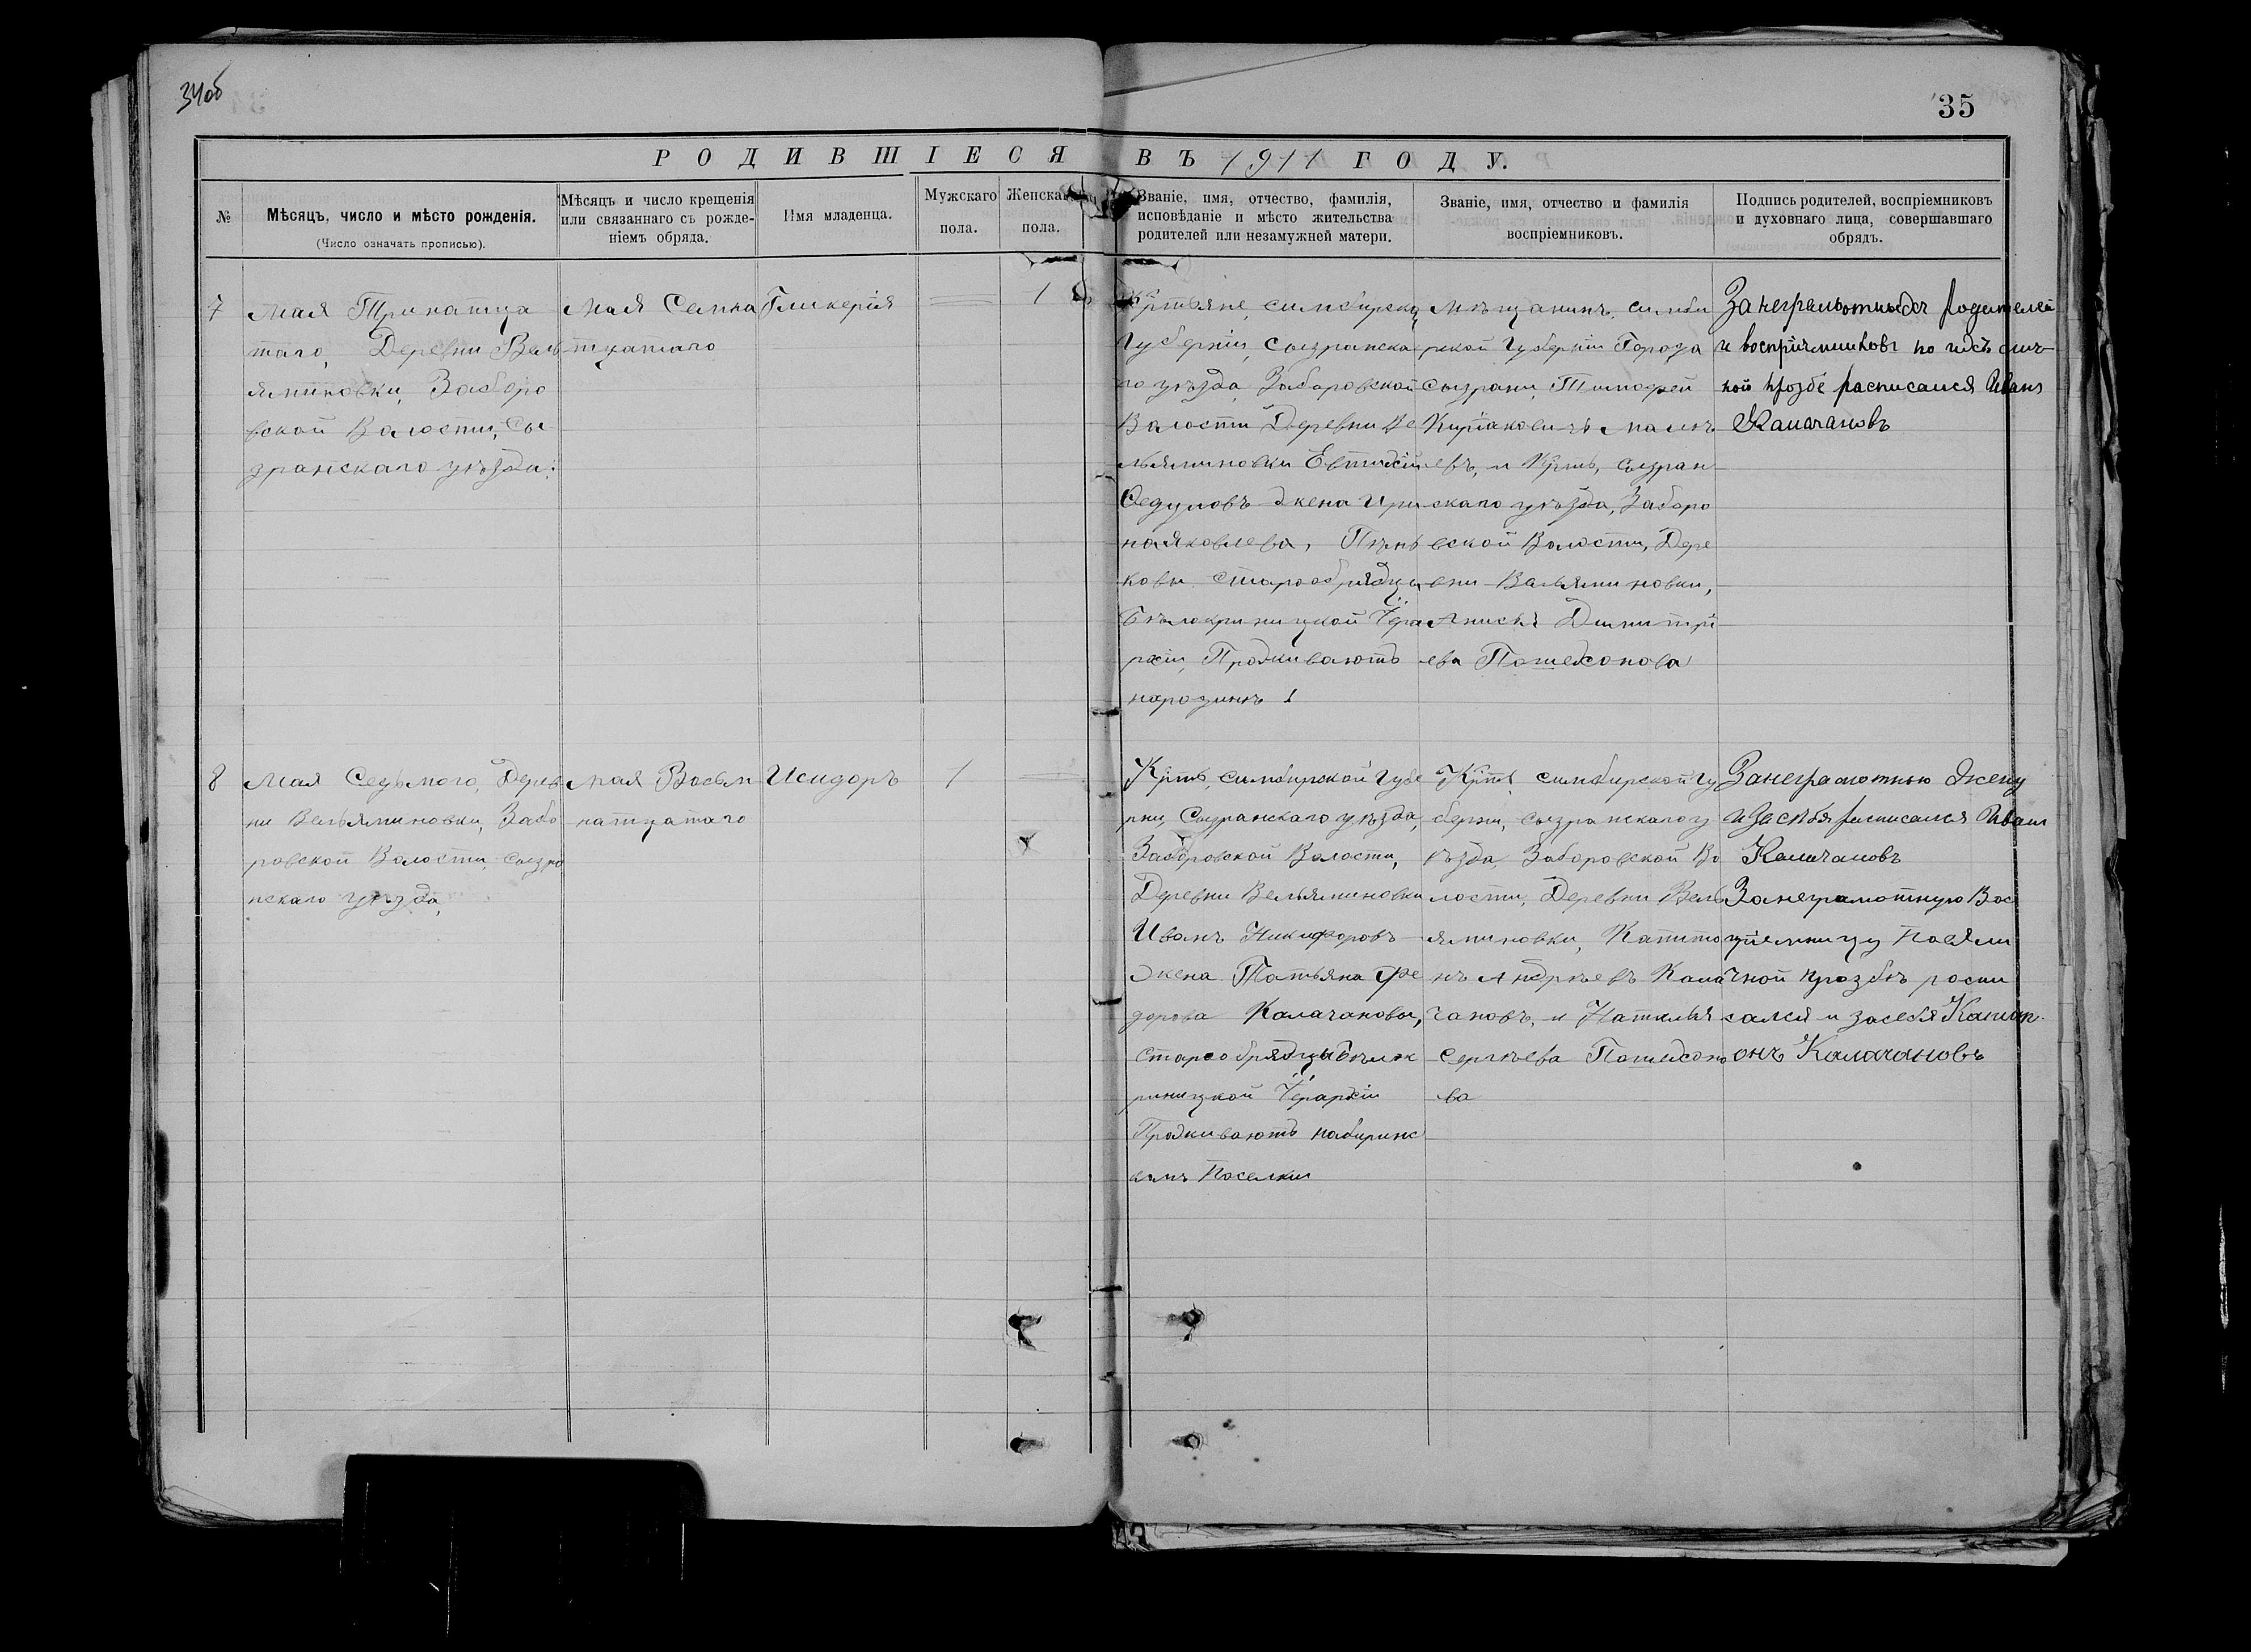 34об
35
РОДИВШІЕСЯ ВЪ 1911 ГОДУ.
№
Мѣсяцъ, число и мѣсто рожденія.
(Число означать прописью).
Мѣсяцъ и число крещенія
или связаннаго съ рожде-
ніемъ обряда.
Имя младенца.
Мужскаго
пола.
Женска
пола.
Званіе, имя, отчество, фамилія,
исповѣданіе и мѣсто жительства
родителей или незамужней матери.
Званіе, имя, отчество и фамилія
воспріемниковъ.
Подпись родителей, воспріемниковъ
и духовнаго лица, совершавшаго
обрядъ.
7
мая Тринатца
таго, Деревни Вель
яминовки, Заборо
вской Волости, Сы
зранскаго уѣзда.
мая Семна
тцатаго
Гликерія
1
симбирско
Губерніи, Сызранска
го уѣзда, Заборовской
Волости Деревни Ве
льяминовки
Федуловъ жена Ири
на Яковлева,
ковы старообрядцы
Бѣлокриницкой Іера
рхіи, Проживаютъ
мѣщанинъ симби
рской Губерніи Города
Сызрани, Тимофей
Киріаковичъ
евъ, и Крть, сызран
скаго уѣзда, Заборо
вской Волости, Дере
вни Вельяминовки,
Анисья Димитрі
ева Пошехонова
За неграмотныхъ родителей
и воспріемниковъ по ихъ лич-
ной прозбе расписался Иванъ
Калачановъ
8
мая Седьмого, Дерев
ни Вельяминовки, Забо
ровской Волости, Сызра
нскаго уѣзда,
мая Восем
натцатаго
Исидоръ
1
Крть, симбирской Губе
рни, Сызранскаго уѣзда,
Заборовской Волости,
Деревни Вельяминовки
Иванъ Никифоровъ
жена Татьяна Фе
дорова Калачановы,
старообрядцы Бѣлок
риницкой Іерархіи
Проживаютъ
Поселки
Крть симбирской Гу
берни, сызранскаго у
ѣзда, Заборовской Во
лости, Деревни Вель
яминовки, Капито
нъ Андрѣевъ Кала
чановъ, и Наталья
Сергѣева Пошехоно
ва
За неграмотнью жену
и за себя расписался Иван
Калачановъ
За неграмотную Вос
пріемницу по ея ли
чной прозбѣ распи
сался и за себя Капит
онъ Калачановъ